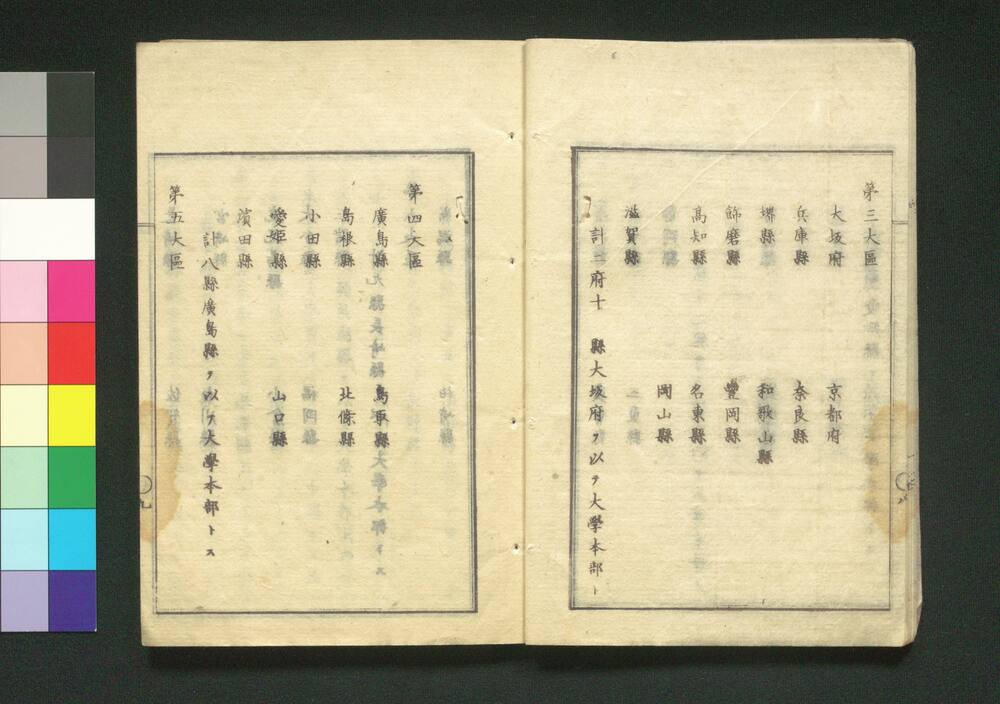 第三大區
大坂府 京都府
兵庫縣 奈良縣
堺縣 和歌山縣
餝磨縣 豐岡縣
髙知縣 名東縣
岡山縣
滋賀縣
計二府十 縣大坂府ヲ以テ大學本部ト
第四大區
廣島縣 鳥取縣
島根縣 北條縣
小田縣
愛媛縣 山口縣
濱田縣
計八縣廣島縣ヲ以テ大學本部トス
第五大區
九